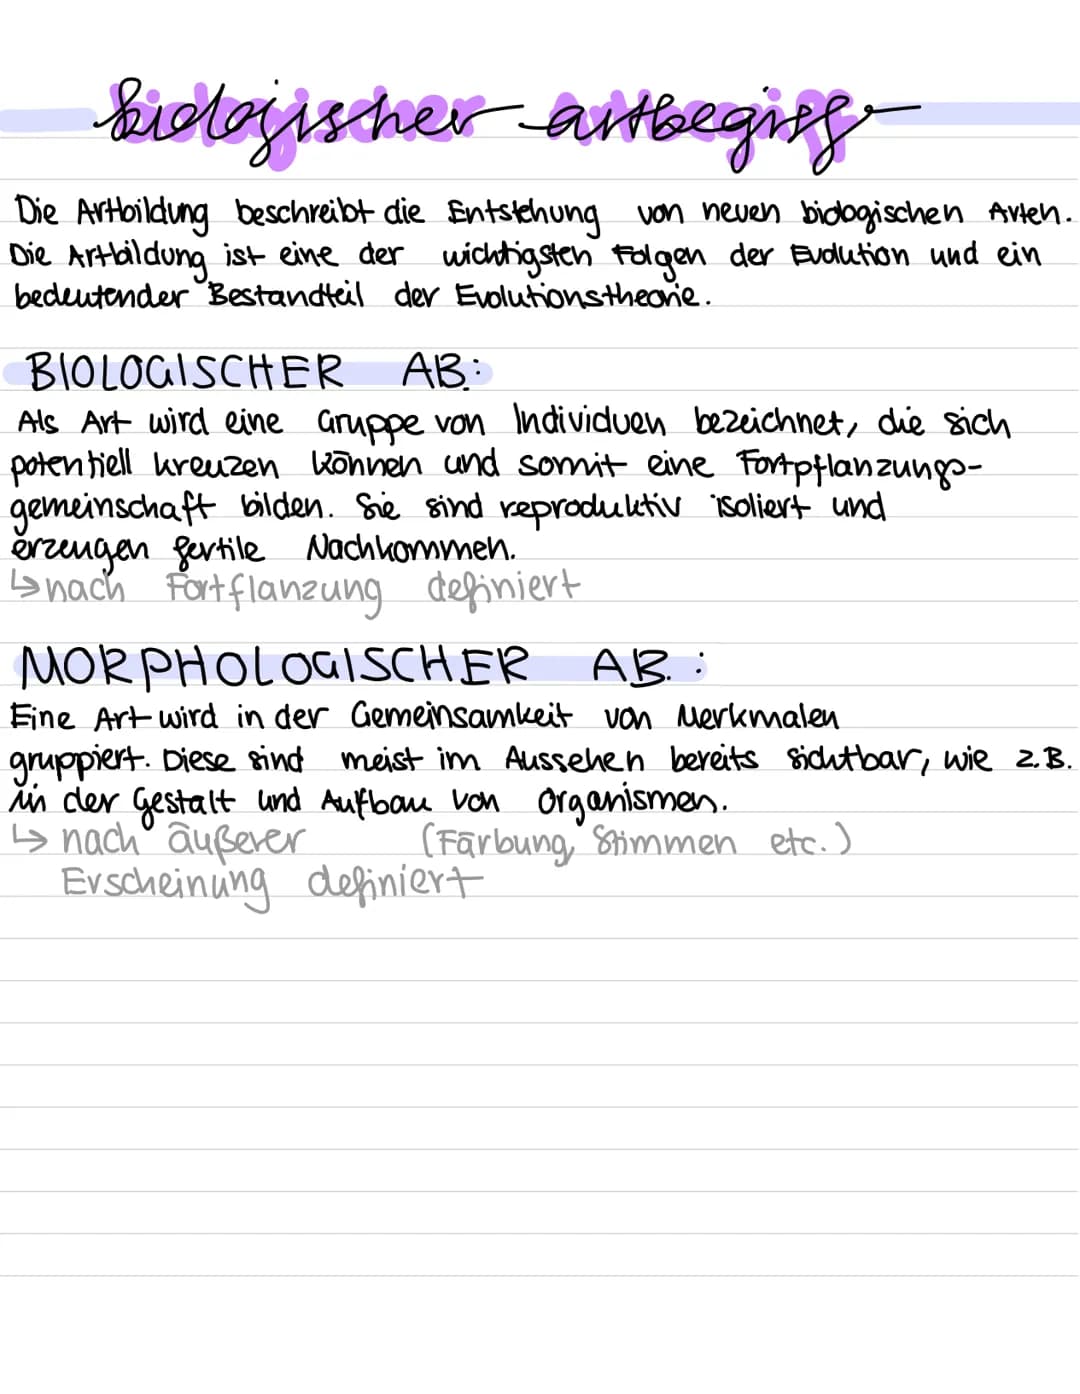 biologischer artbegriff
Die Artbildung beschreibt die Entstehung von neuen biologischen Arten.
Die Artbildung ist eine der wichtigsten Folgen der Evolution und ein
bedeutender Bestandteil der Evolutionstheorie.
BIOLOGISCHER AB.:
Als Art wird eine Gruppe von Individuen bezeichnet, die sich
potentiell kreuzen können und somit eine Fortpflanzungs-
gemeinschaft bilden. Sie sind reproduktiv isoliert und
erzeugen fertile Nachkommen.
↳ nach Fortflanzung definiert
MORPHOLOGISCHER AB.:
Eine Art wird in der Gemeinsamkeit von Merkmalen
gruppiert. Diese sind meist im Aussehen bereits sichtbar, wie z.B.
in der Gestalt und Aufbau von Organismen.
↳ nach äußerer (Färbung, Stimmen etc.)
Erscheinung definiert